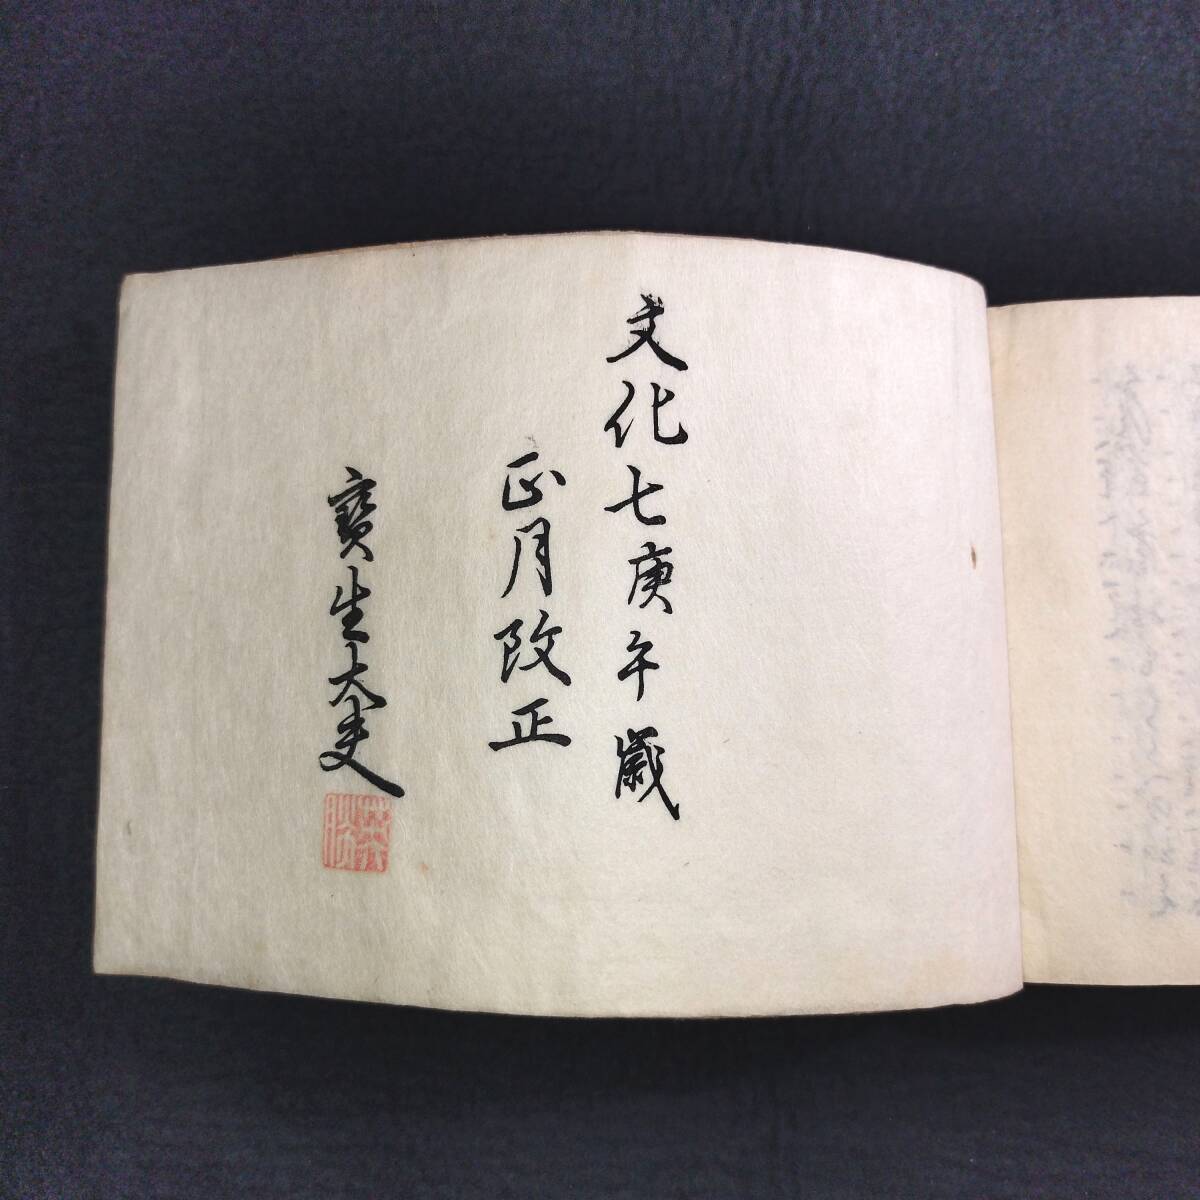 文化七庚午歳
正月改正
寳生大夫
英勝